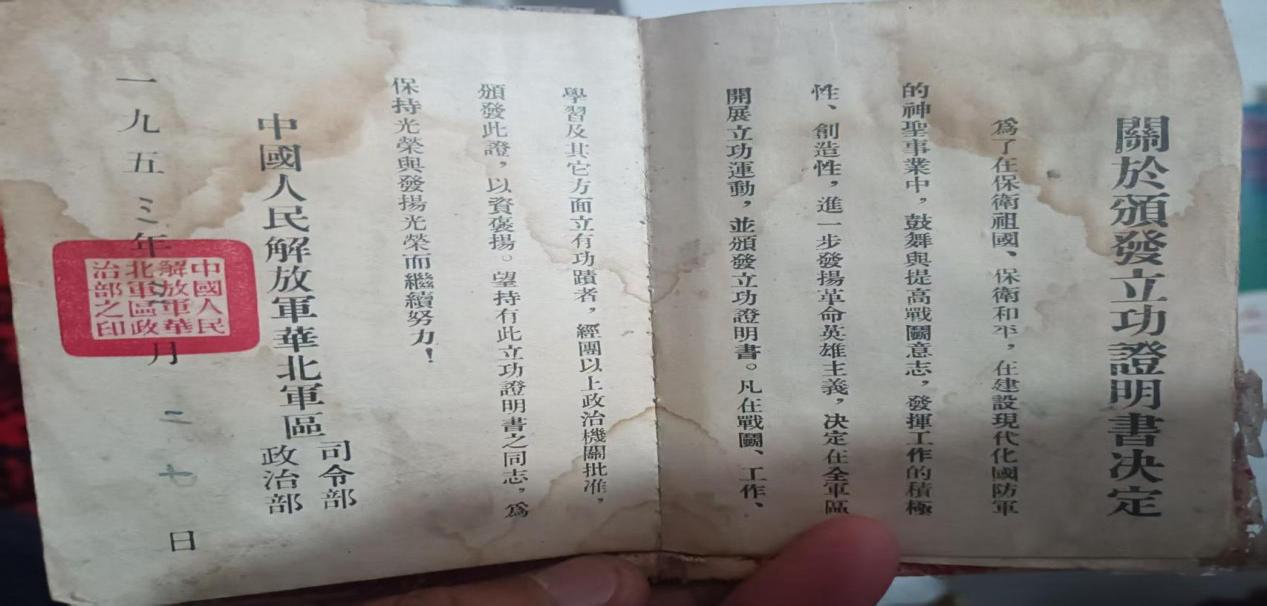 關於頒發立功證明書决定
爲了在保衛祖國、保衛和平，在建設現代化國防軍
的神聖事業中，鼓舞與提高戰鬭意志，發揮工作的積極
性、創造性，進一步發揚革命英雄主義，决定在全軍區
開展立功運動，並頒發立功證明書。凡在戰鬭、工作、
學習及其它方面立有功蹟者，經團以上政治機關批准，
頒發此證，以資褒揚。望持有此立功證明書之同志，爲
保持光榮與發揚光榮而繼續努力！
中國人民解放軍華北軍區
司令部
政治部
一九五三年 月二七日
中國人民
解放軍華
北軍區政
治部之印